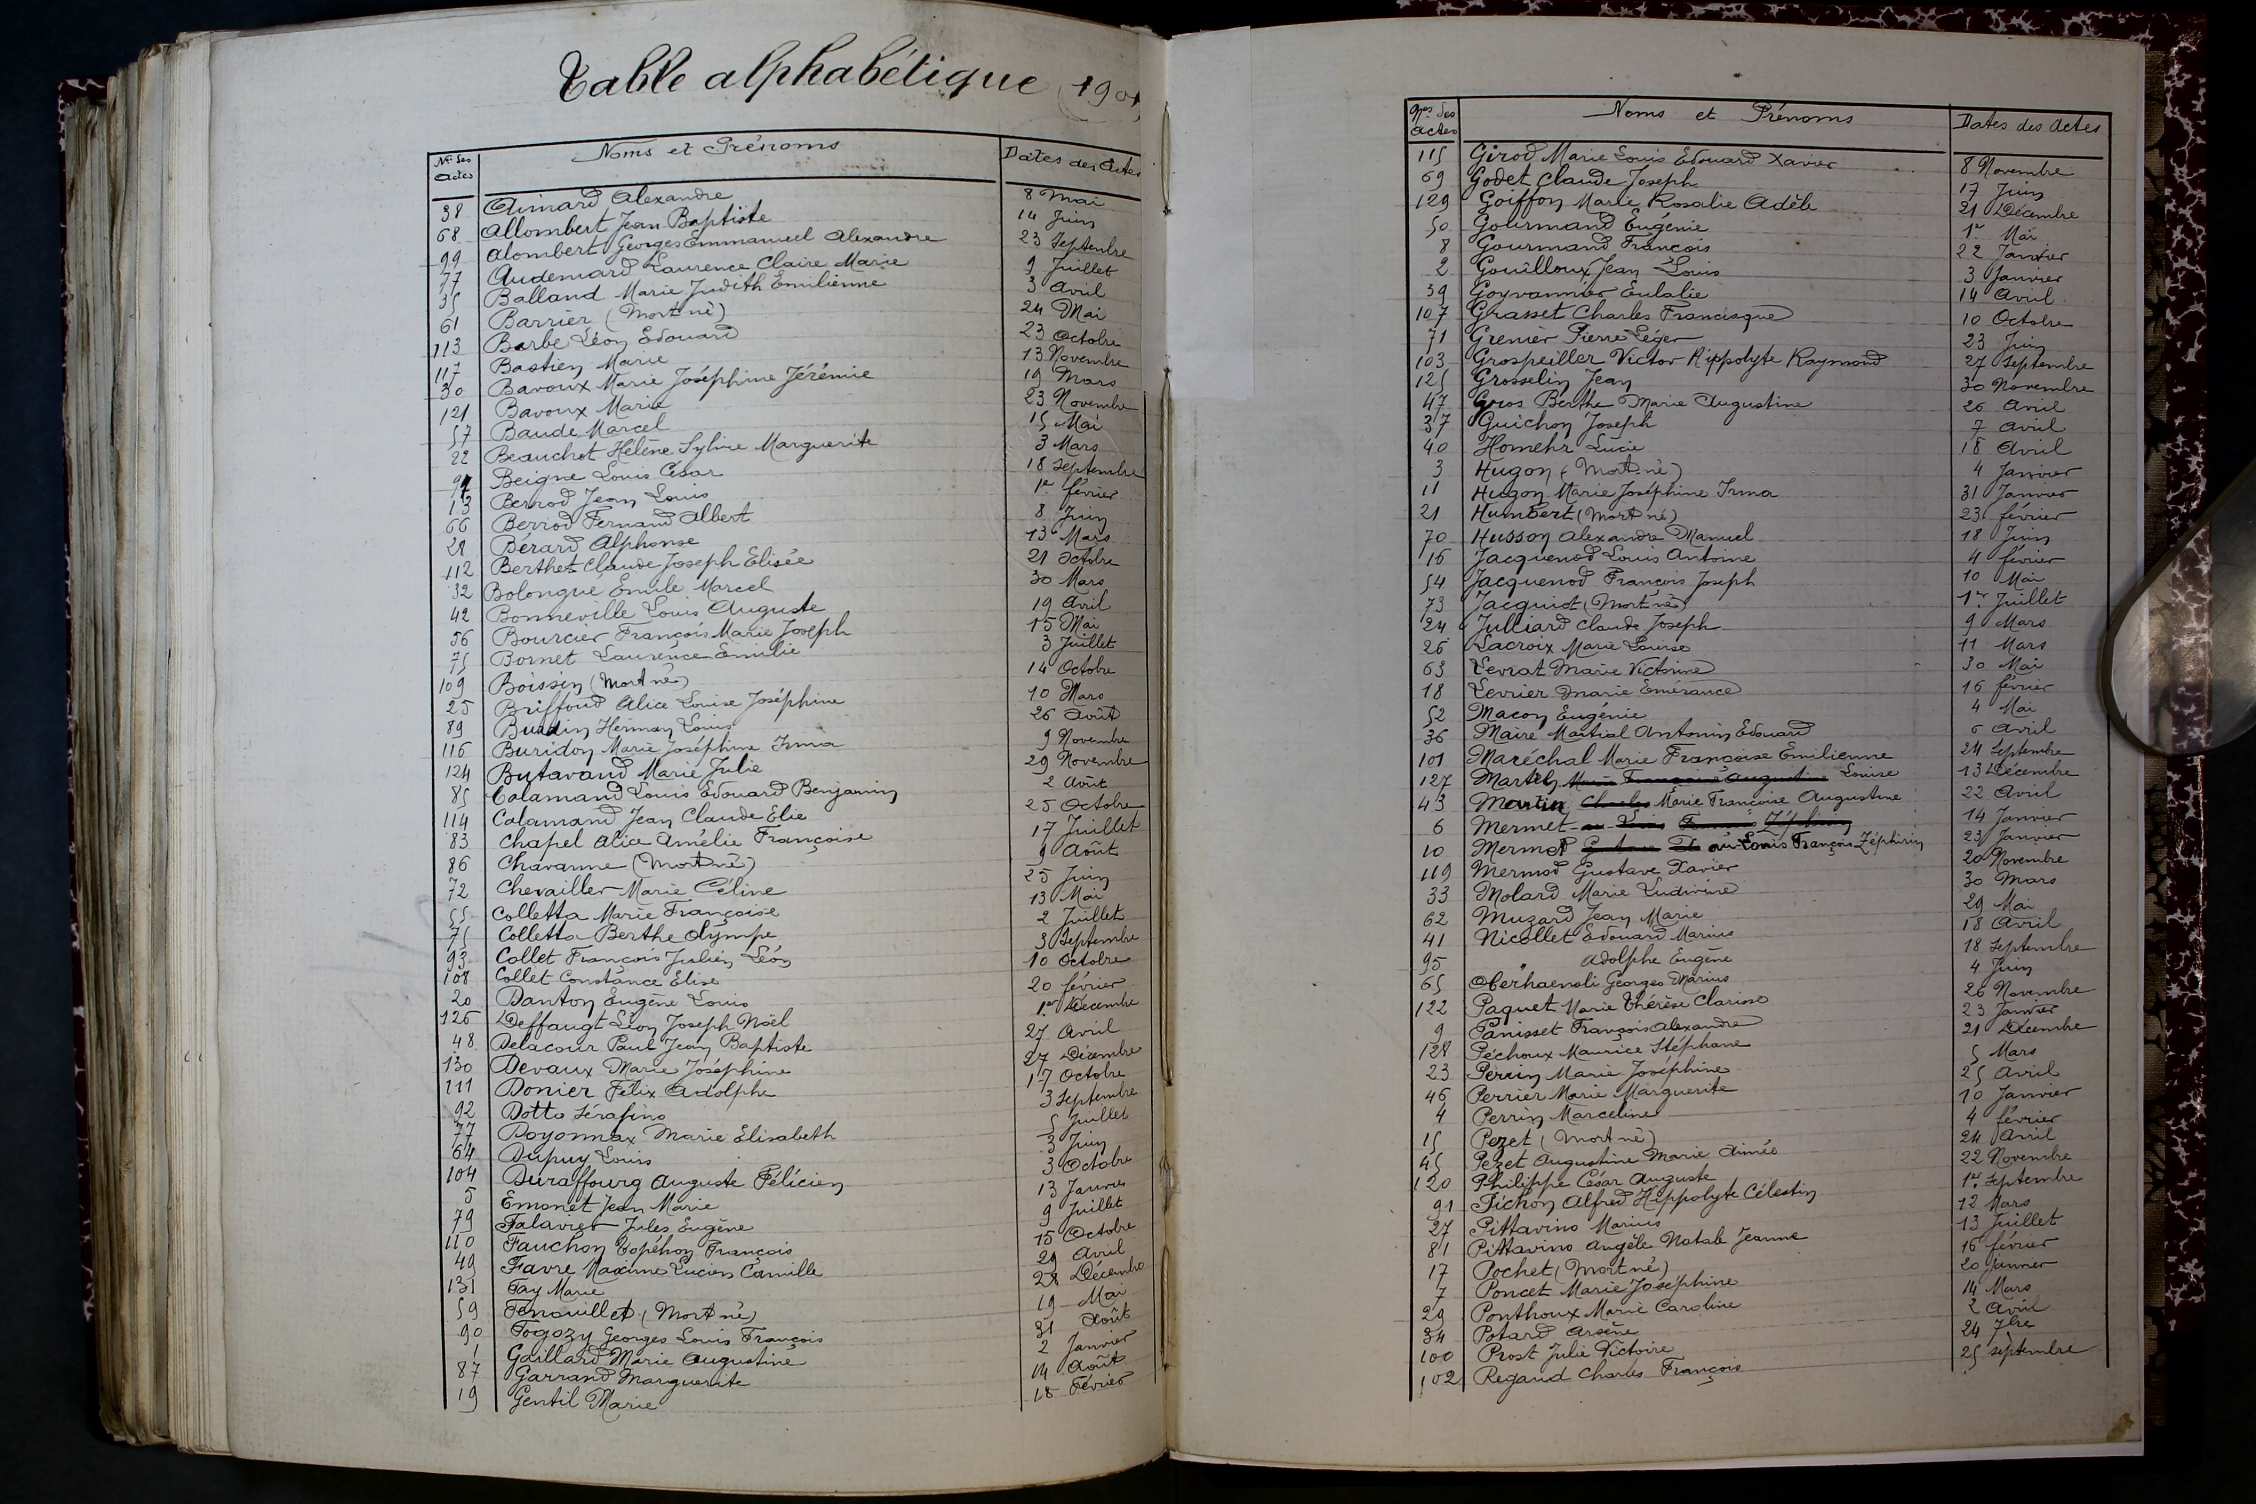 Table alphabétique (1901)
Nos des Actes Noms et Prénoms Dates des Actes
38 Aimard Alexandre 8 Mai
68 Allombert Jean Baptiste 14 Juin
99 Alombert Georges Emmanuel Alexandre 23 Septembre
77 Audemard Laurence Claire Marie 9 Juillet
35 Balland Marie Judith Emilienne 3 Avril
61 Barrier (Mort né) 24 Mai
113 Barbe Léon Edouard 23 Octobre
117 Bastien Marie 13 Novembre
30 Bavoux Marie Joséphine Jérémie 19 Mars
121 Bavoux Marie 23 Novembre
57 Baude Marcel 15 Mai
22 Beauchot Hélène Sylvie Marguerite 3 Mars
97 Beigne Louis César 18 Septembre
13 Berrod Jean Louis 1er février
66 Berrod Fernand Albert 8 Juin
28 Bérard Alphonse 13 Mars
112 Berthet Claude Joseph Elisée 21 Octobre
32 Bolongue Emile Marcel 30 Mars
42 Bonneville Louis Auguste 19 Avril
56 Bourcier François Marie Joseph 15 Mai
75 Bornet Laurence Emilie 3 Juillet
109 Boissin (Mort né) 14 Octobre
25 Briffoud Alice Louise Joséphine 10 Mars
89 Burdin Herman Louis 26 Août
116 Buridon Marie Joséphine Irma 9 Novembre
124 Butavand Marie Julie 29 Novembre
85 Calamand Louis Edouard Benjamin 2 Août
114 Calamand Jean Claude Elie 25 Octobre
83 Chapel Alice Amélie Françoise 17 Juillet
86 Chavanne (Mort né) 9 Août
72 Chevailler Marie Céline 25 Juin
55 Colletta Marie Françoise 13 Mai
75 Colletta Berthe Olympe 2 Juillet
93 Collet François Julien Léon 3 Septembre
108 Collet Constance Elise 10 Octobre
20 Danton Eugène Louis 20 février
126 Deffaugt Léon Joseph Noël 1er Décembre
48 Delacour Paul Jean Baptiste 27 Avril
130 Devaux Marie Joséphine 27 Décembre
111 Donier Félix Adolphe 17 Octobre
92 Dotto Sérafino 3 Septembre
77 Doyonnax Marie Elisabeth 5 Juillet
64 Dupuy Louis 3 Juin
104 Duraffourg Auguste Félicien 3 Octobre
5 Emonet Jean Marie 13 Janvier
79 Falavier Jules Eugène 9 Juillet
110 Fauchon François 15 Octobre
49 Favre Maxime Lucien Camille 29 Avril
131 Fay Marie 28 Décembre
59 Fenouillet (Mort né) 19 Mai
90 Fogozy Georges Louis François 31 Août
1 Gaillard Marie Augustine 2 Janvier
87 Garrand Marguerite 14 Août
19 Gentil Marie 18 Février
Nos des Actes Noms et Prénoms Dates des Actes
115 Girod Marie Louis Edouard Xavier 8 Novembre
69 Godet Claude Joseph 17 Juin
129 Goiffon Marie Rosalie Adèle 21 Décembre
50 Gourmand Eugénie 1er Mai
8 Gourmand François 22 Janvier
2 Gouilloux Jean Louis 3 Janvier
39 Goyvannier Eulalie 14 Avril
107 Grasset Charles Francisque 10 Octobre
71 Grenier Pierre Léger 23 Juin
103 Grospeiller Victor Hippolyte Raymond 27 Septembre
125 Grosselin Jean 30 Novembre
47 Gros Berthe Marie Augustine 26 Avril
37 Guichon Joseph 7 Avril
40 Homehr Lucie 18 Avril
3 Hugon (Mort né) 4 Janvier
11 Hugon Marie Joséphine Irma 31 Janvier
21 Humbert (Mort né) 23 février
70 Husson Alexandre Manuel 18 Juin
16 Jacquenod Louis Antoine 4 février
54 Jacquenod François Joseph 10 Mai
73 Jacquiot (Mort né) 1er Juillet
24 Julliard Claude Joseph 9 Mars
26 Lacroix Marie Louise 11 Mars
63 Levrat Marie Victorine 30 Mai
18 Levrier Marie Emérance 16 février
52 Macon Eugénie 4 Mai
36 Maire Martial Antonin Edouard 6 Avril
101 Maréchal Marie Françoise Emilienne 24 Septembre
127 Martel Marie Françoise Augustine Louise 13 Décembre
43 Martin Charles Marie Françoise Augustine 22 Avril
6 Mermet Louis François Zéphirin 14 Janvier
10 Mermet Louis François Zéphirin 23 Janvier
119 Mermod Gustave Xavier 20 Novembre
33 Molard Marie Ludivine 30 Mars
62 Muzard Jean Marie 29 Mai
41 Nicollet Edouard Marius 18 Avril
95 " Adolphe Eugène 18 Septembre
65 Oberhaensli Georges Marius 4 Juin
122 Paquet Marie Thérèse Clarisse 26 Novembre
9 Panisset François Alexandre 23 Janvier
128 Péchoux Maurice Stéphane 21 Décembre
23 Perrin Marie Joséphine 5 Mars
46 Perrier Marie Marguerite 25 Avril
4 Perrin Marceline 10 Janvier
15 Pezet (Mort né) 4 février
45 Pezet Augustine Marie Aimée 24 Avril
120 Philippe César Auguste 22 Novembre
91 Pichon Alfred Hippolyte Célestin 1er Septembre
27 Pittavino Marius 12 Mars
81 Pittavino Angèle Natale Jeanne 13 Juillet
17 Pochet (Mort né) 16 février
7 Poncet Marie Joséphine 20 Janvier
29 Ponthoux Marie Caroline 14 Mars
34 Potard Arsène 2 Avril
100 Prost Julie Victoire 24 7bre
102 Regaud Charles François 25 septembre